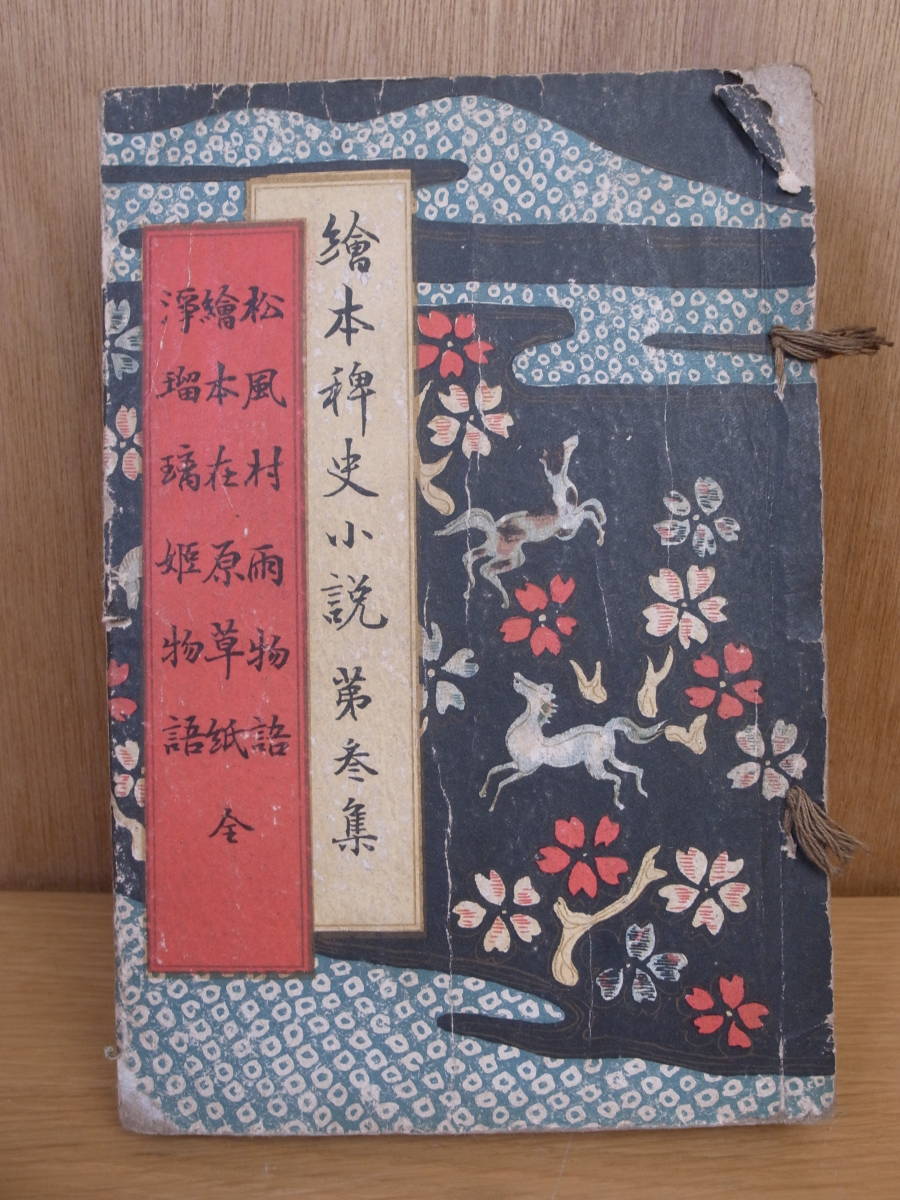 繪本稗史小説 第叁集
松風村雨物語
繪本在原草紙 全
淨瑠璃姫物語